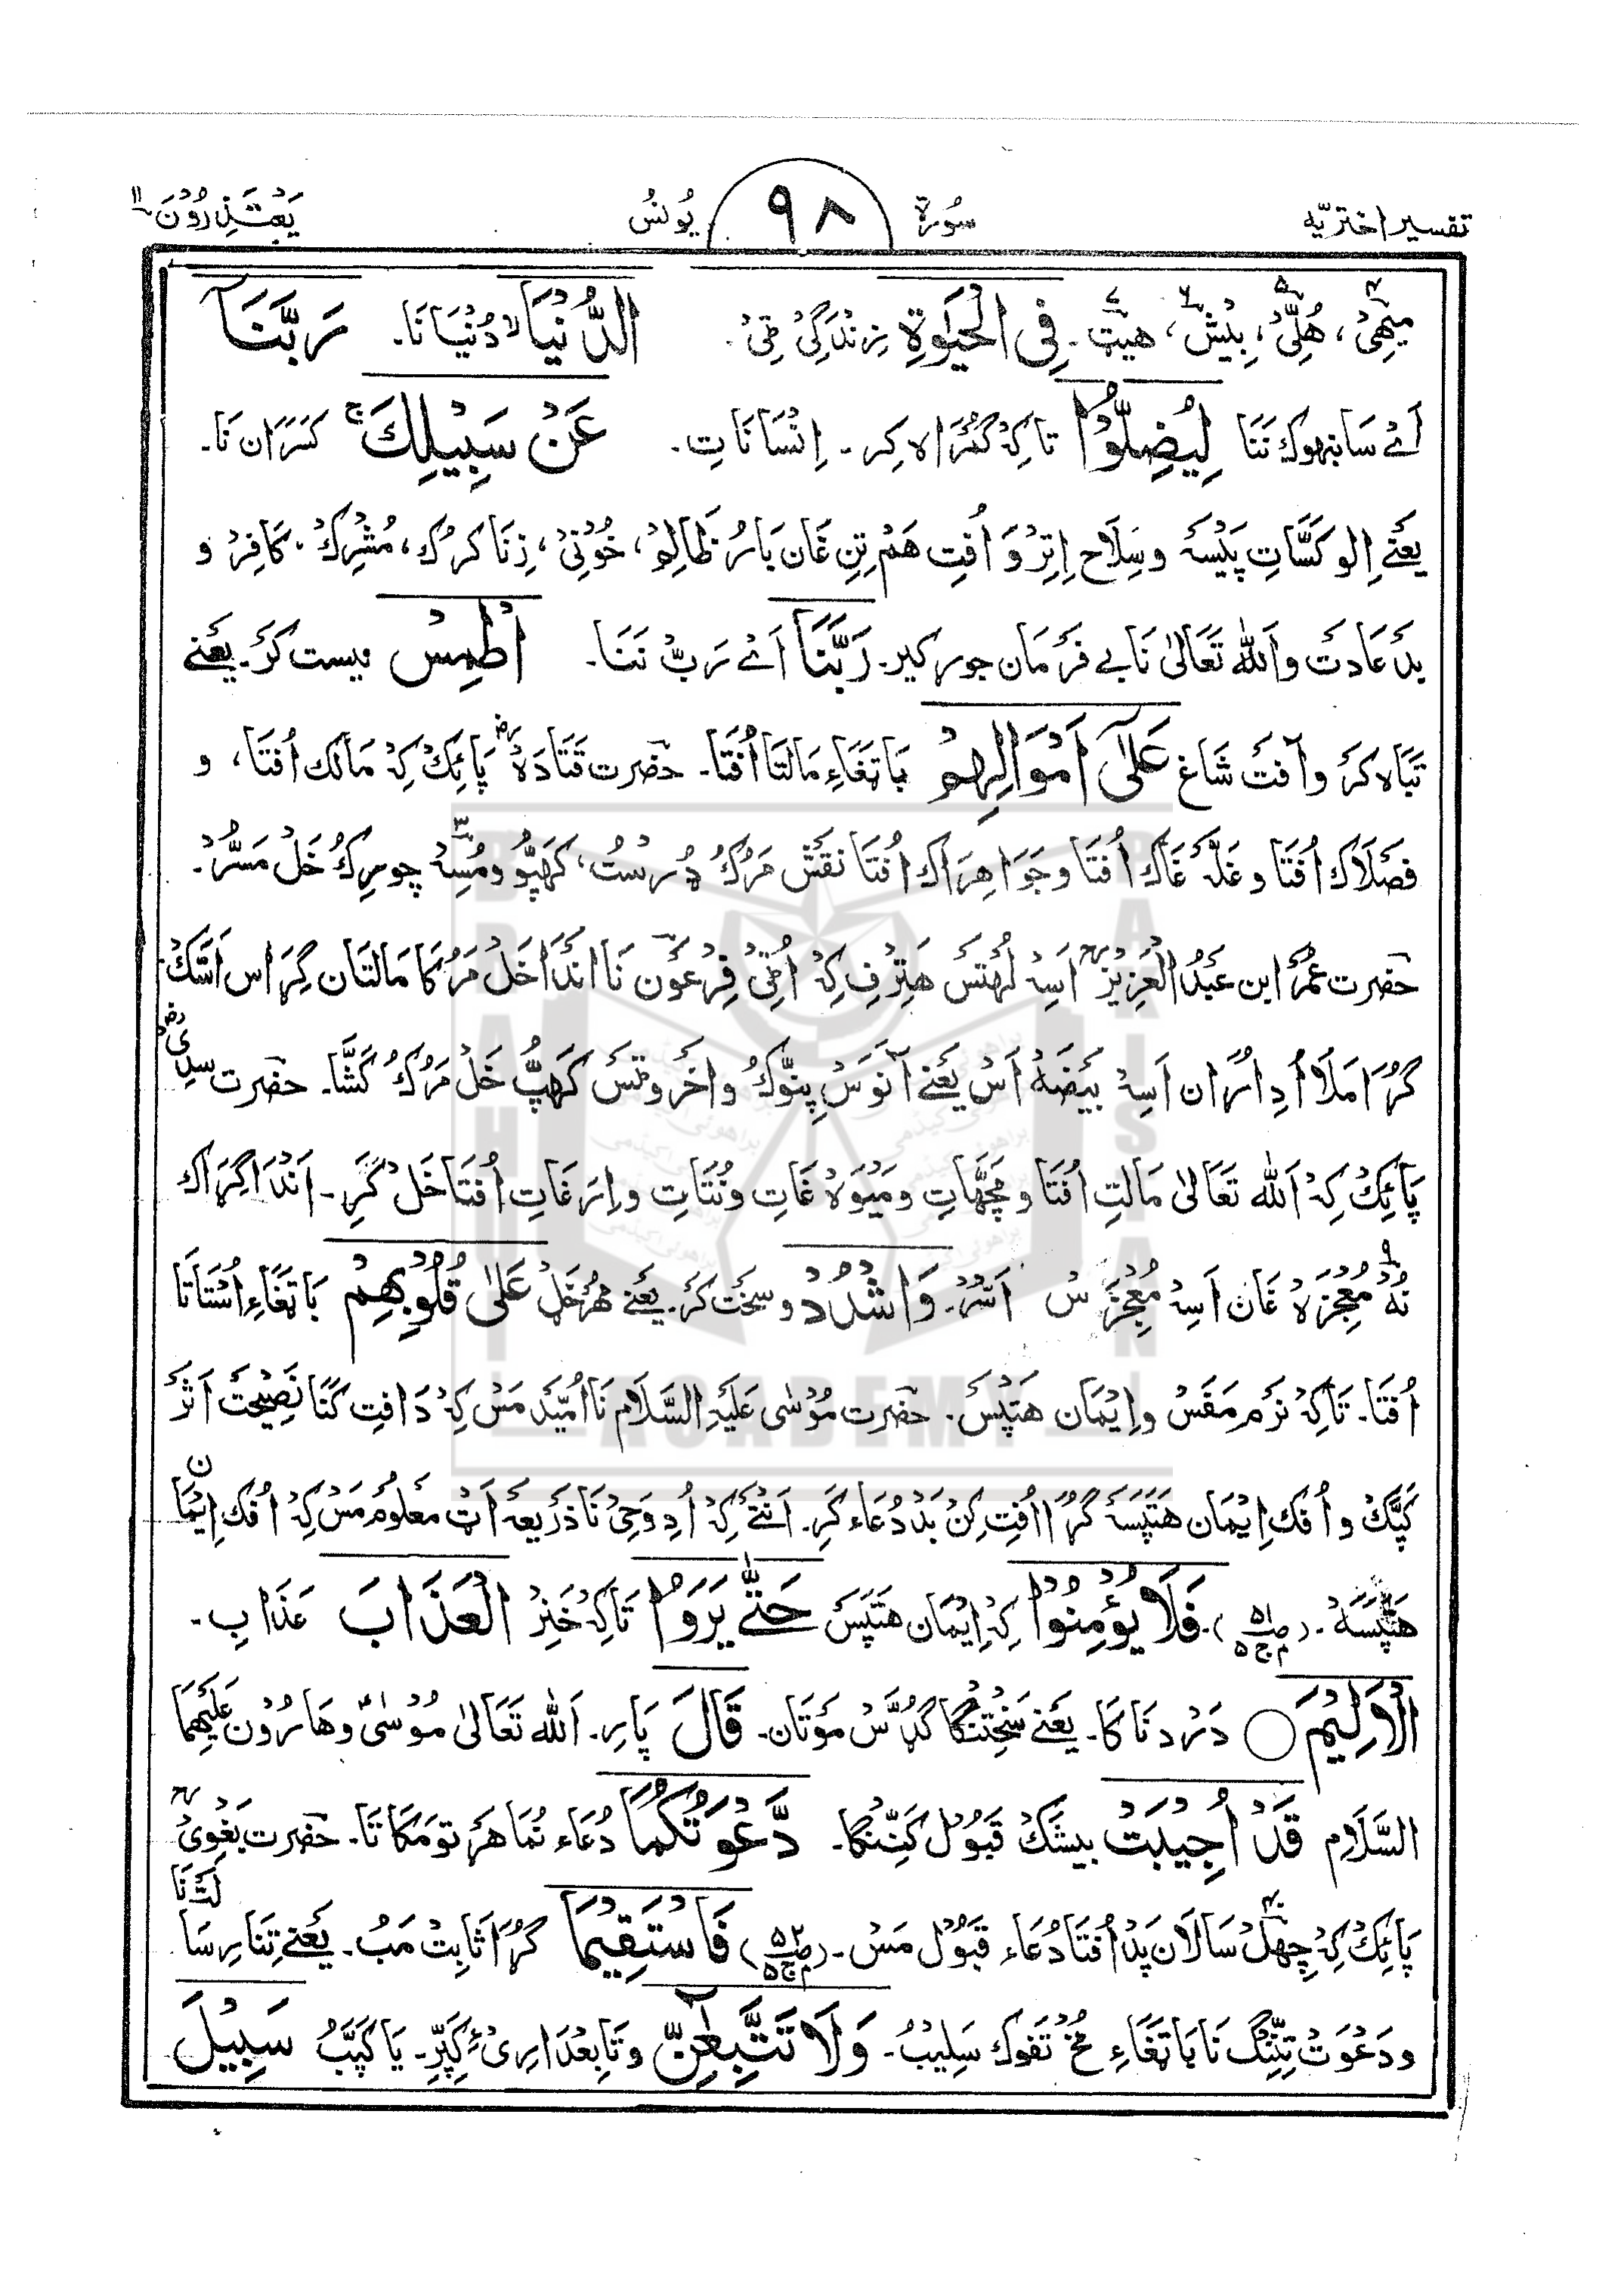 تفسیر اختریّه سُورة ٩٨ یُونسُ یَعۡتَذِرُوۡنَ ١١
میٖهِی، هُلِّی، بِیۡش، هیٹ۔ فِی الۡحَیٰوةِ زِنۡدَگِیۡ ٹِیۡ۔ الدُّنۡیَا دُنۡیَا نَا۔ رَبَّنَا
اَےۡ سَابنہوک نَنَا لِیُضِلُّوۡا تاکِہۡ گُمۡرَاہ کِر۔ اِنۡسَانَاتِ۔ عَنۡ سَبِیۡلِكَ کَسَرَان نَا۔
یَعۡنےۡ اِلو کَسَّاتِ پَیۡسَہ وسِلَاح اِتِرۡ وَ اُفتِ هَمۡ تِنِ غَان بَارُ ظَالِمۡ، خُوۡنِیۡ، زِنَاکرُك، مُشۡرِكۡ، کَافِرۡ و
بَدۡعَادَتۡ واَللّٰهُ تَعَالیٰ نَابے فَرۡمَان جوڑکیر۔ رَبَّنَا اَےۡ رَبّ نَنَا۔ اطۡمِسۡ نیست کَرۡ۔ یَعۡنےۡ
تَبَاہ کَرۡ وآفتۡ شَاغ عَلٰۤی اَمۡوَالِهِمۡ بَاتغَاءِ مَالتَا اُفتَا۔ حضرت قَتَادَہؓ پَائِكۡ کِہۡ مَالك اُفتَا، و
فَصَلَاك اُفتَا وغَلَّہ غَاك اُفتَا وجَوَاهِرَاك اُفتَا نَقۡش مَرُكۡ دُرسۡتُ، کَهَپُّو ومُسِّہۡ چوسِرِكُ خَلۡ مَسُّرۡ۔
حضرت عُمَرۡ ابن عَبۡدُ الۡعَزِیۡز اَسِہۡ لُهتَسۡ هَتِرۡف کِہۡ اُٹِیۡ فِرۡعَوۡن نَا اَنۡدَا خَلۡ مَرُکَا مَالتَان گِرَاس اَسَّكۡ
گُرَّا مَلَا اُدِ اُرَان اَسِہۡ بَیۡضَہۡ اَسۡ یَعۡنےۡ آنوَسۡ پِنّوَكُ واَخَروٹَسۡ کَهَپُّ خَلۡ مَرُكُ کَشَّا۔ حضرت سدِیؓ
پَائِكۡ کِہۡ اَللّٰهُ تَعَالیٰ مَالتِ اُفتَا ومَچهَّاتِ ومَیۡوَہ غَاتِ ونُنَّتَاتِ واِرَ غَاتِ اُفتَا خَلۡ کَرِ۔ اَنۡدَا گِرَاك
نُہۡ مُعۡجِزَہ غَان اَسِہۡ مُعۡجِزَسۡ اَسُّرۡ۔ وَاشۡدُدۡ وسَخۡت کَرۡ۔ یَعۡنےۡ مُهرۡخَلۡ عَلٰی قُلُوۡبِهِمۡ بَاتغَاءِ اُسۡتَاتَا
اُفتَا۔ تَاکِہۡ نَرۡم مَفَسۡ واِیۡمَان هَتَپَسۡ۔ حضرت مُوۡسٰی عَلَیۡهِ السَّلَام نَا اُمّیۡد مَسۡ کِہۡ دَافتِ کَنَا نَصِیۡحَتۡ اَثَرۡ
کَپَّكۡ و اُفك اِیۡمَان هَتَپَسَہ گُرَّا اُفتِ کِنۡ بَدۡ دُعَاء کَرِ۔ اَنۡتَےۡ کِہۡ اُدِ وَحِیۡ نَا ذَرِیۡعَہ اَٹ مَعلُومۡ مَسۡ کِہۡ اُفك اِیۡمَان
هَتَپَسَہ۔ (ص۵۱ م ج۵)۔ فَلَا یُؤۡمِنُوۡا کِہۡ اِیۡمَان هَتَپَسۡ حَتّٰی یَرَوُا تَاکِہۡ خَنِرۡ الۡعَذَابَ عَذَابِ۔
الۡاَلِیۡمَ ○ دَرۡدنَاکَا۔ یَعۡنےۡ سَخۡتنگَا گُڈَّسۡ مَوۡتَان۔ قَالَ پَارِ۔ اَللّٰهُ تَعَالیٰ مُوۡسٰی وهَارُوۡن عَلَیۡهِمَا
السَّلَام قَدۡ اُجِیۡبَتۡ بیشَكۡ قَبُوۡل کَنِنۡگا۔ دَّعۡوَتُکُمَا دُعَاء نُمَا هَرۡتومَکَاتَا۔ حضرت بَغۡوِیؒ
پَائِكۡ کِہۡ چِهَلۡ سَالَان پَدۡ اُفتَا دُعَاء قَبُوۡل مَسۡ۔ (ص۵۲ م ج۵) فَاسۡتَقِیۡمَا گُرَّا ثَابِتۡ مَبُ۔ یَعۡنےۡ تِنَا رِسَالَتۡ نَا
ودَعۡوَتۡ تِنِنۡگ نَا بَاتَغَاءِ مُخ تَفوك سَلِیبُ۔ وَلَا تَتَّبِعٰٓنِّ وتَابعۡدَارِیۡ ءِ کِپّر۔ یَا کَپَّبُ سَبِیۡلَ